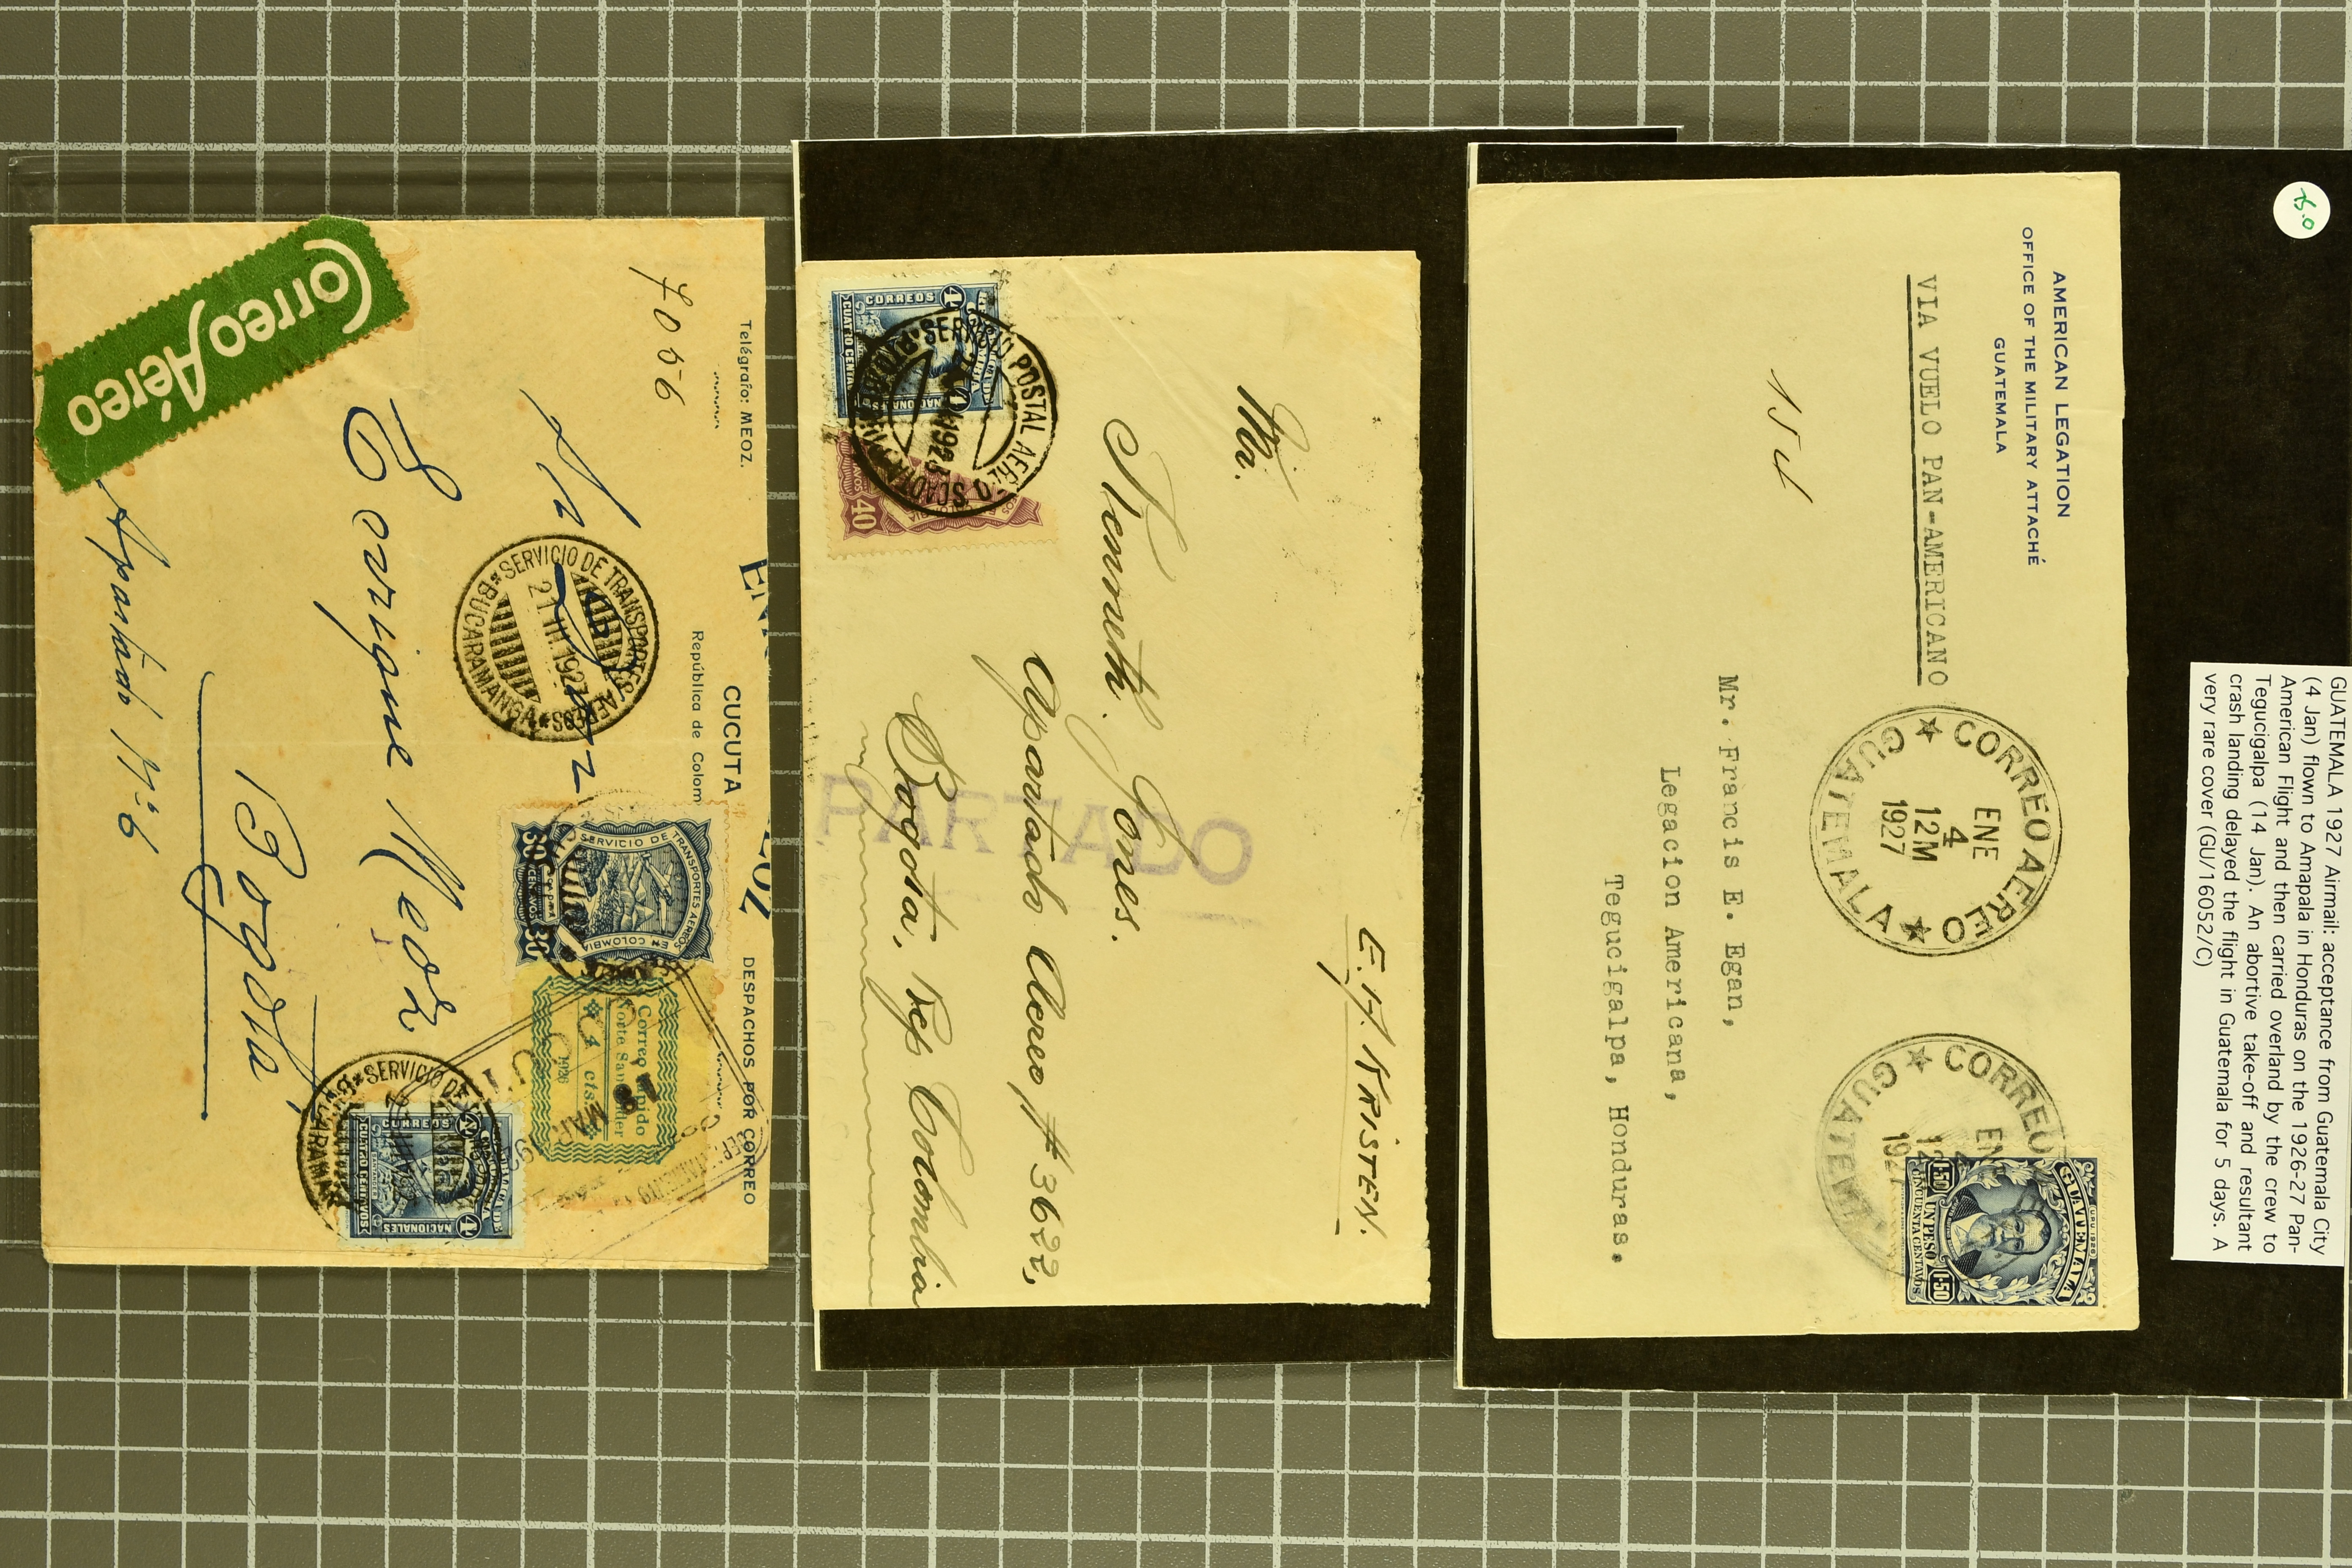 GUATEMALA 1927 Airmail: acceptance from Guatemala City
(4 Jan) flown to Amapala in Honduras on the 1926-27 Pan-
American Flight and then carried overland by the crew to
Tegucigalpa (14 Jan). An abortive take-off and resultant
crash landing delayed the flight in Guatemala for 5 days. A
very rare cover (GU/16052/C)
AMERICAN LEGATION
OFFICE OF THE MILITARY ATTACHÉ
GUATEMALA
VIA VUELO PAN-AMERICANO
CORREO AEREO
ENE
4
12M
1927
GUATEMALA
CORREO
ENE
GUATEMALA
UN PESO
CINCUENTA CENTAVOS
1.50 1.50
Mr. Francis E. Egan,
Legacion Americana,
Tegucigalpa, Honduras.
E. A. KRISTEN.
Mr.
Kenneth Jones.
Apartado Aereo, # 3622,
Bogota, Rep. Colombia
PARTADO
SERVICIO POSTAL AEREO
SCADTA
CORREOS
CUATRO CENTAVOS
NACIONALES
4
40
Telégrafo: MEOZ.
CUCUTA
República de Colom
DESPACHOS POR CORREO
7056
Enrique Meoz
Bogotá
Apartado Nº 6
Correo Aéreo
SERVICIO DE TRANSPORTES AEREOS
21.III.1927
BUCARAMANGA
SERVICIO DE TRANSPORTES AEREOS
EN COLOMBIA
30 CENTAVOS 30
Correo Rapido
Norte Santander
4 cts.
1926
SERVICIO DE
BUCARAMANGA
CORREOS
CUATRO CENTAVOS
NACIONALES
4